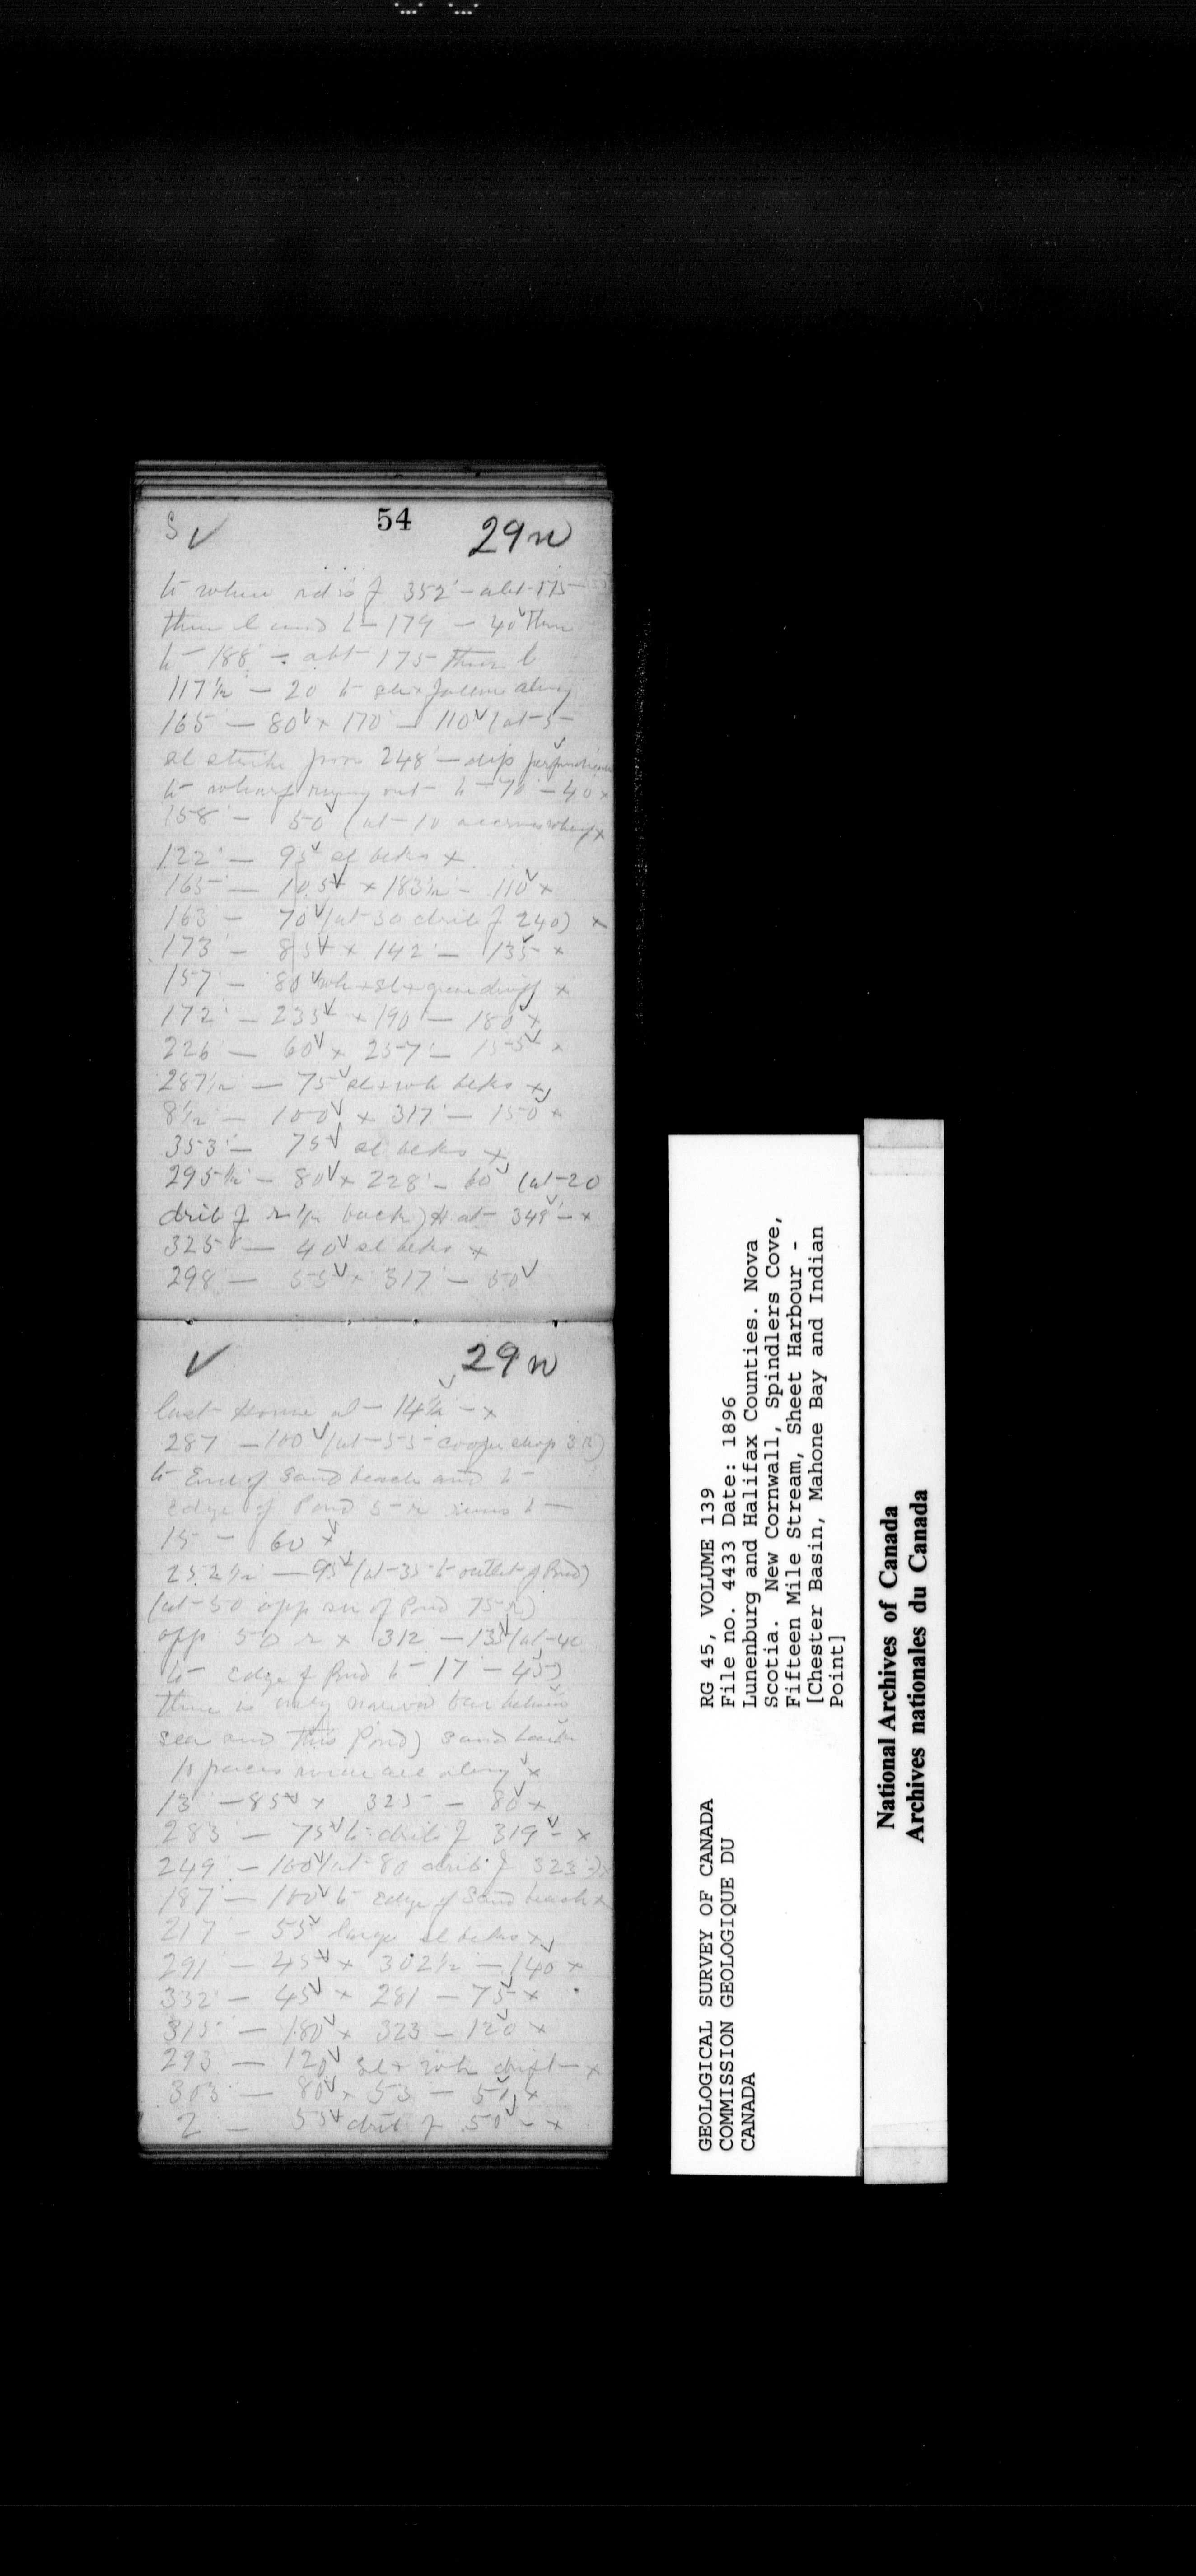 S ✓ 54 29 n
to where rd is f 352 — abt 175
then l and to 179 — 40 ✓ then
to 188 — abt 175 then l
117½ — 20 to sh + follow along
165 — 80 ✓ x 170 — 110 ✓ (at 5
sl strike from 248 — dip
to wharf running out to 70 — 40 x
158 — 50 ✓ (at 10 across wharf x
122 — 95 ✓ sl beks x
165 — 105 ✓ x 183½ — 110 ✓ x
163 — 70 ✓ (at 30 drib f 240) x
173 — 85 ✓ x 142 — 135 ✓ x
157 — 80 ✓ wh + sl + x
172 — 235 ✓ x 190 — 180 ✓ x
226 — 60 ✓ x 257 — 155 ✓ x
287½ — 75 ✓ sl + wh beks x
8½ — 100 ✓ x 317 — 150 ✓ x
353 — 75 ✓ sl beks x
295½ — 80 ✓ x 228 — 60 ✓ (at 20
drib f back) at 349 ✓ — x
325 — 40 ✓ sl beks x
298 — 55 ✓ x 317 — 50 ✓
✓ 29 n
last house at 14½ ✓ — x
287 — 100 ✓ (at 55 cooper shop 3 r)
to End of Sand beach and to
edge of Pond 5 r runs to
15 — 60 ✓ x
252½ — 95 ✓ (at 35 to outlet of Pond)
(at 50 opp of Pond 75 r)
opp 50 r x 312 — 135 ✓ (at 40
to edge of Pond to 17 — 45 ✓)
there is only narrow bar between
sea and this Pond) sand beach
15 paces wide all along ✓ x
13 — 85 ✓ x 325 — 80 ✓ x
283 — 75 ✓ to drib f 319 ✓ — x
249 — 100 ✓ (at 80 drib f 323) x
187 — 100 ✓ to edge of Sand beach x
217 — 55 ✓ large sl beks x
291 — 45 ✓ x 302½ — 140 ✓ x
332 — 45 ✓ x 281 — 75 ✓ x
315 — 180 ✓ x 323 — 120 ✓ x
293 — 120 ✓ sl + wh drift — x
303 — 80 ✓ x 53 — 50 ✓ x
2 — 55 ✓ drib f 50 ✓ — x
GEOLOGICAL SURVEY OF CANADA
COMMISSION GEOLOGIQUE DU
CANADA
RG 45, VOLUME 139
File no. 4433 Date: 1896
Lunenburg and Halifax Counties. Nova
Scotia. New Cornwall, Spindlers Cove,
Fifteen Mile Stream, Sheet Harbour -
[Chester Basin, Mahone Bay and Indian
Point]
National Archives of Canada
Archives nationales du Canada